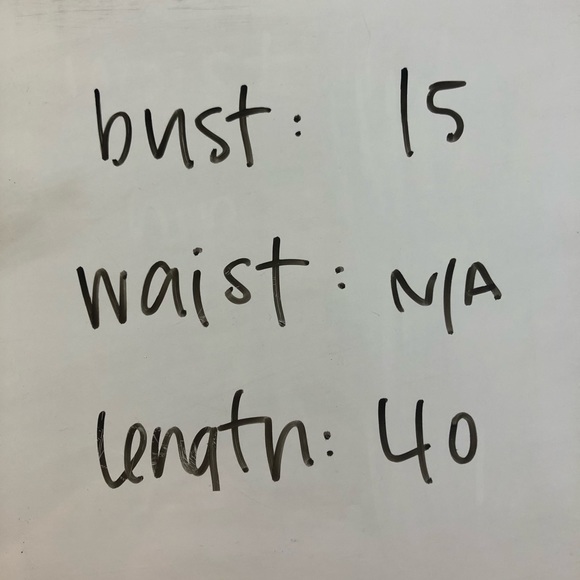 bust: 15
waist: N/A
length: 40